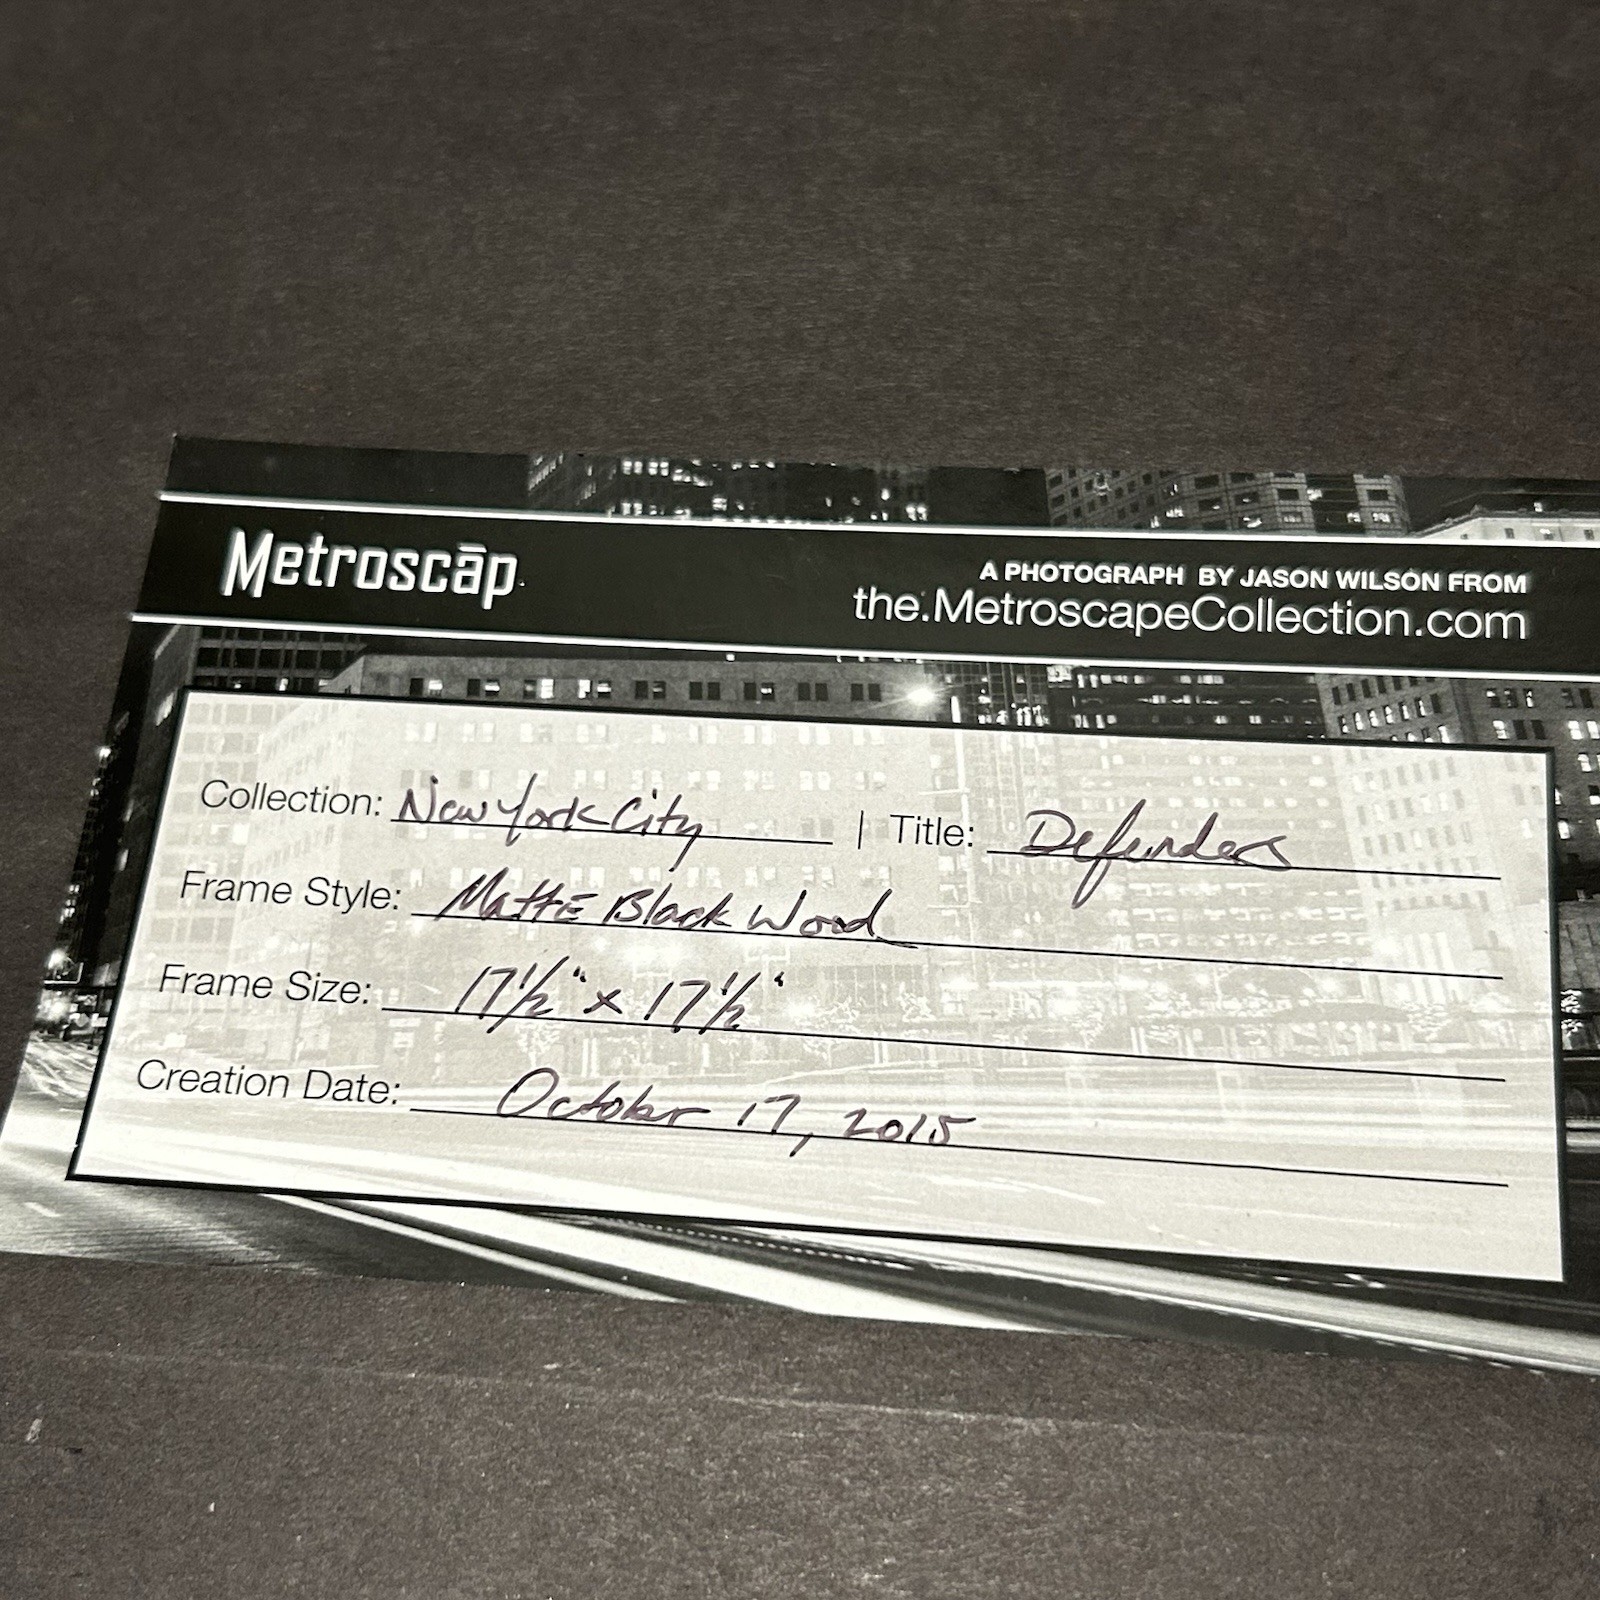 Metroscāp
A PHOTOGRAPH BY JASON WILSON FROM
the.MetroscapeCollection.com
Collection: New York City | Title: Defenders
Frame Style: Matte Black Wood
Frame Size: 17 1/2" x 17 1/2"
Creation Date: October 17, 2015